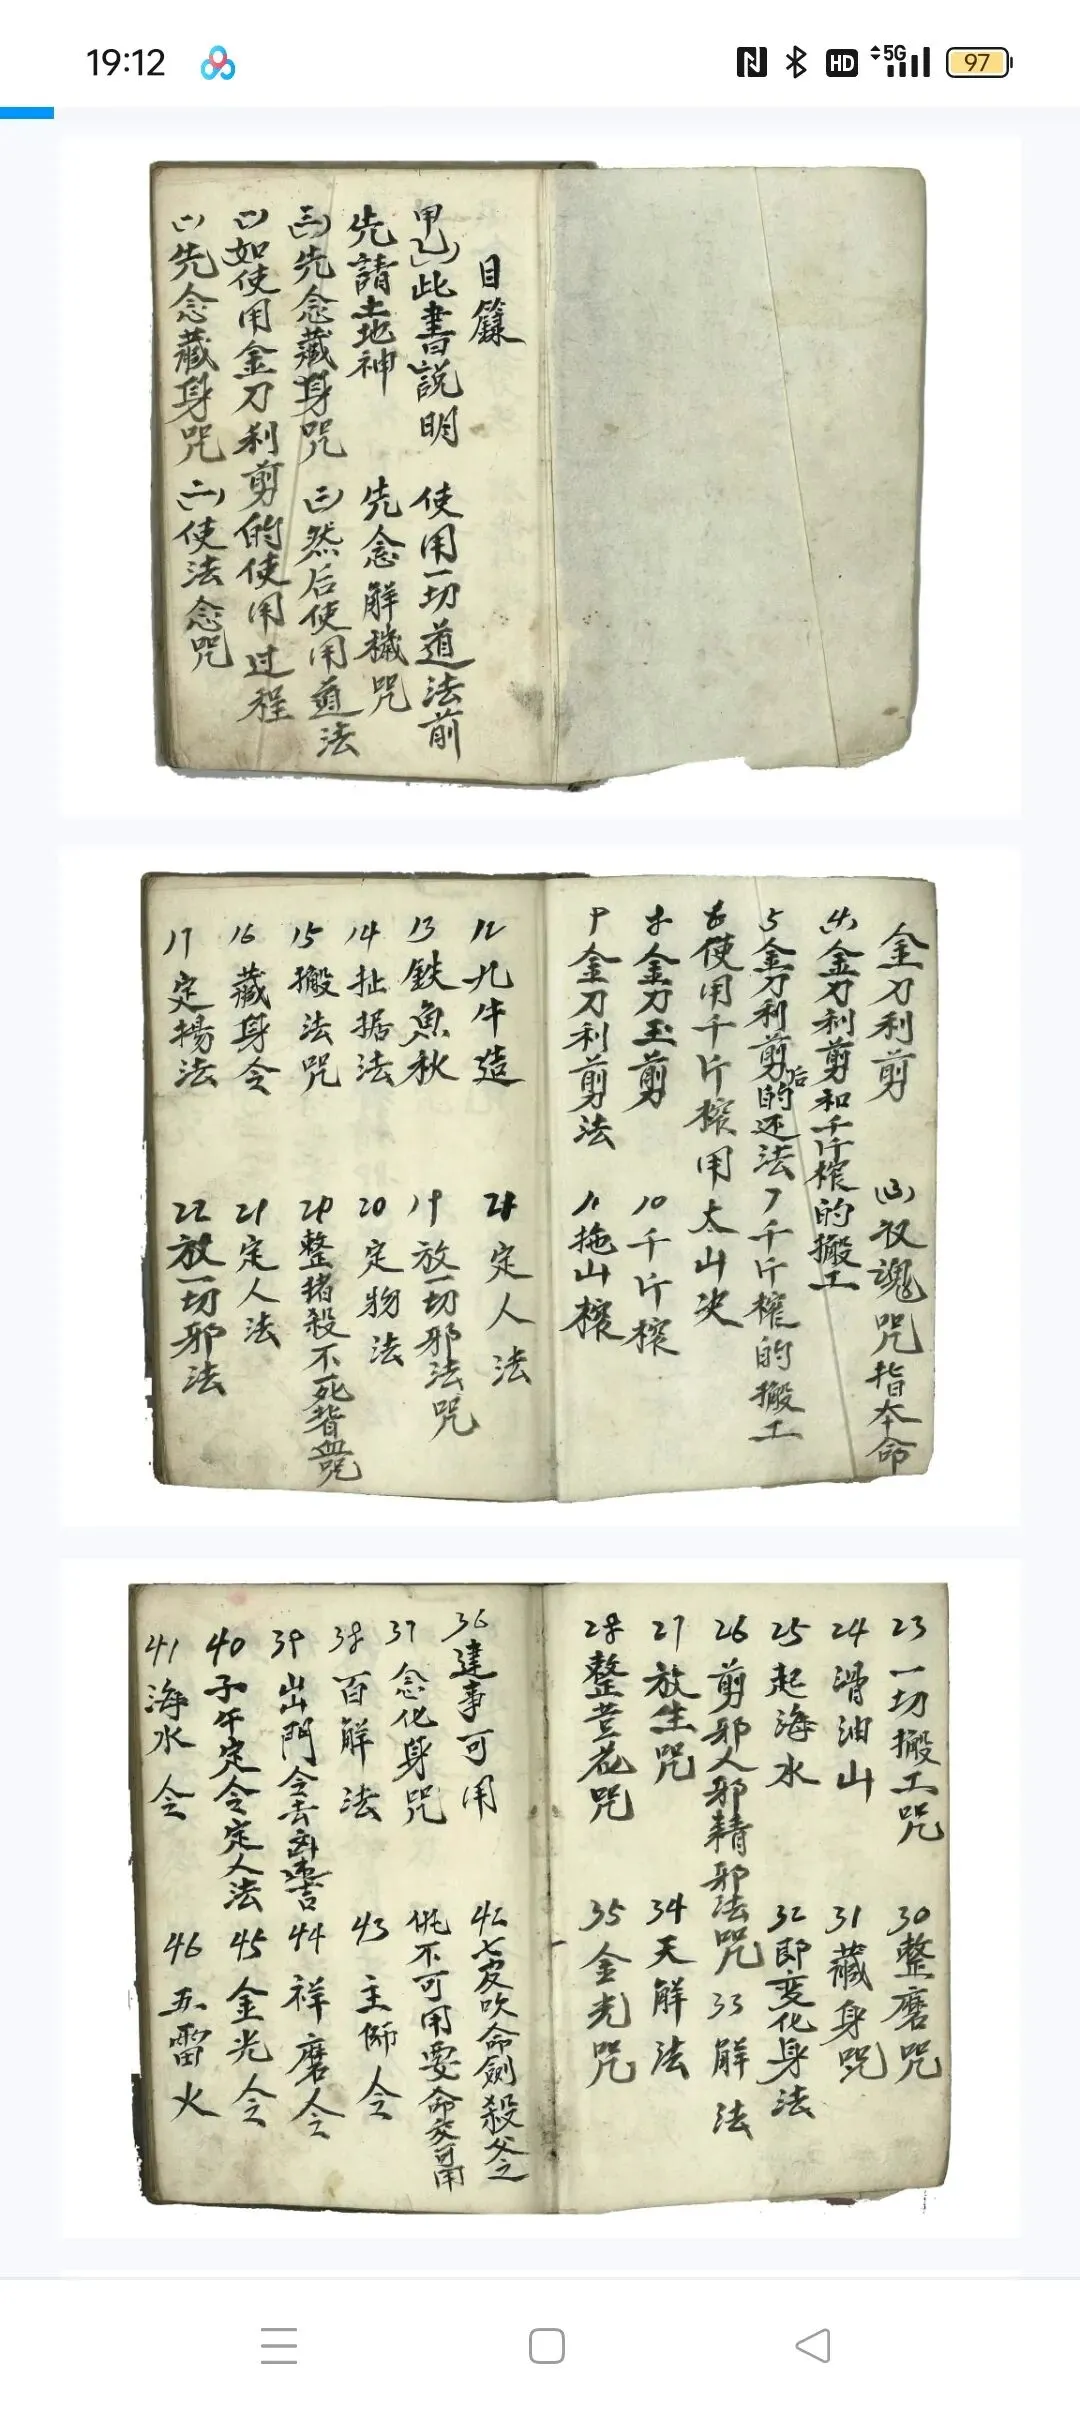 19:12
HD
5G
97
目籙
甲乙)此書説明 使用一切道法前
先請土地神 先念解穢咒
(二)先念藏身咒 (三)然后使用道法
(乙)如使用金刀利剪的使用过程
(一)先念藏身咒 (二)使法念咒
金刀利剪 (3)收魂咒指本命
(4)金刀利剪和千斤榨的搬工
5金刀利剪后的还法 7千斤榨的搬工
6使用千斤榨用太山决
8金刀玉剪 10千斤榨
9金刀利剪法 11拖山榨
12九牛造 21定人法
13鉄魚秋 19放一切邪法咒
14扯据法 20定物法
15搬法咒 20整猪殺不死背血咒
16藏身令 21定人法
17定揚法 22放一切邪法
23一切搬工咒 30整磨咒
24滑油山 31藏身咒
25起海水 32即变化身法
26剪邪人邪精邪法咒 33解法
27放生咒 34天解法
28整荳花咒 35金光咒
36建事可用 42七灾吹命劍殺父之
仇不可用要命交可用
37念化身咒
38百解法 43主師令
39出門令去凶速吉 44祥磨令
40子午定令定人法 45金光令
41海水令 46五雷火